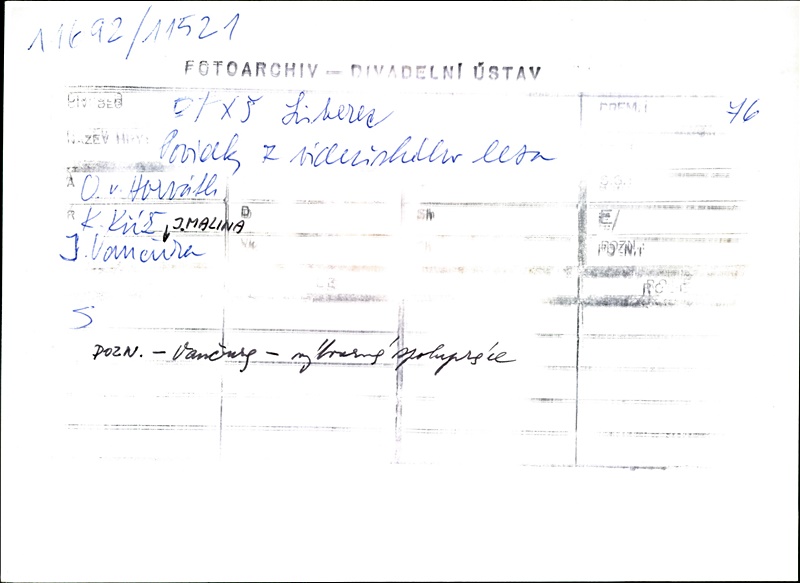 11692/11521
FOTOARCHIV — DIVADELNÍ ÚSTAV
D/ XŠ Liberec
PREM.:
76
NÁZEV HRY:
Povídky z vídeňského lesa
A O. v. Horváth
R K. Kříž, J. MALINA
D
Sh
E/
J. Vančura
POZN.:
S
POZN. — Vančura — výtvarná spolupráce